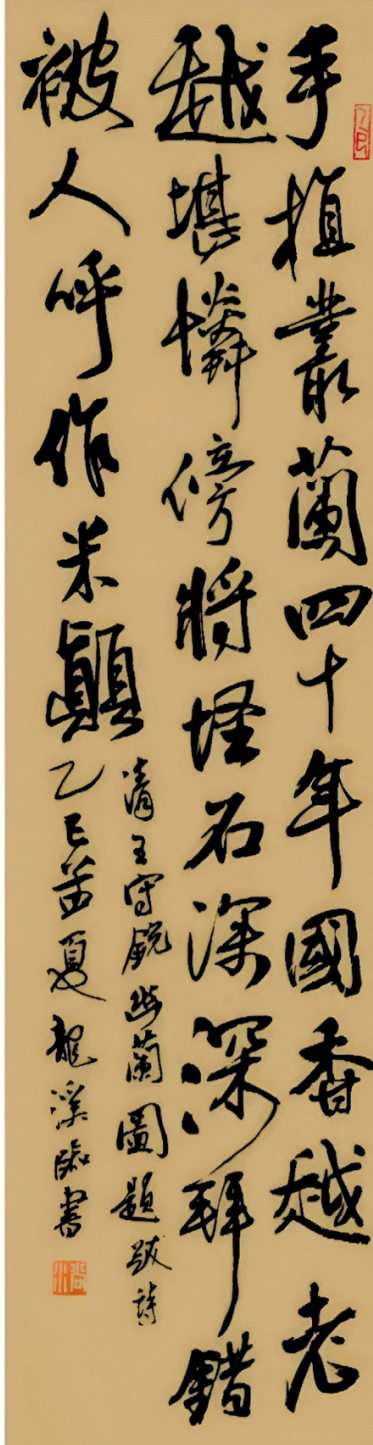 手植叢蘭四十年國香越老
越堪憐傍將怪石深深拜錯
被人呼作米顛
清王守銳幽蘭圖題跋詩
乙巳首夏龍溪臨書